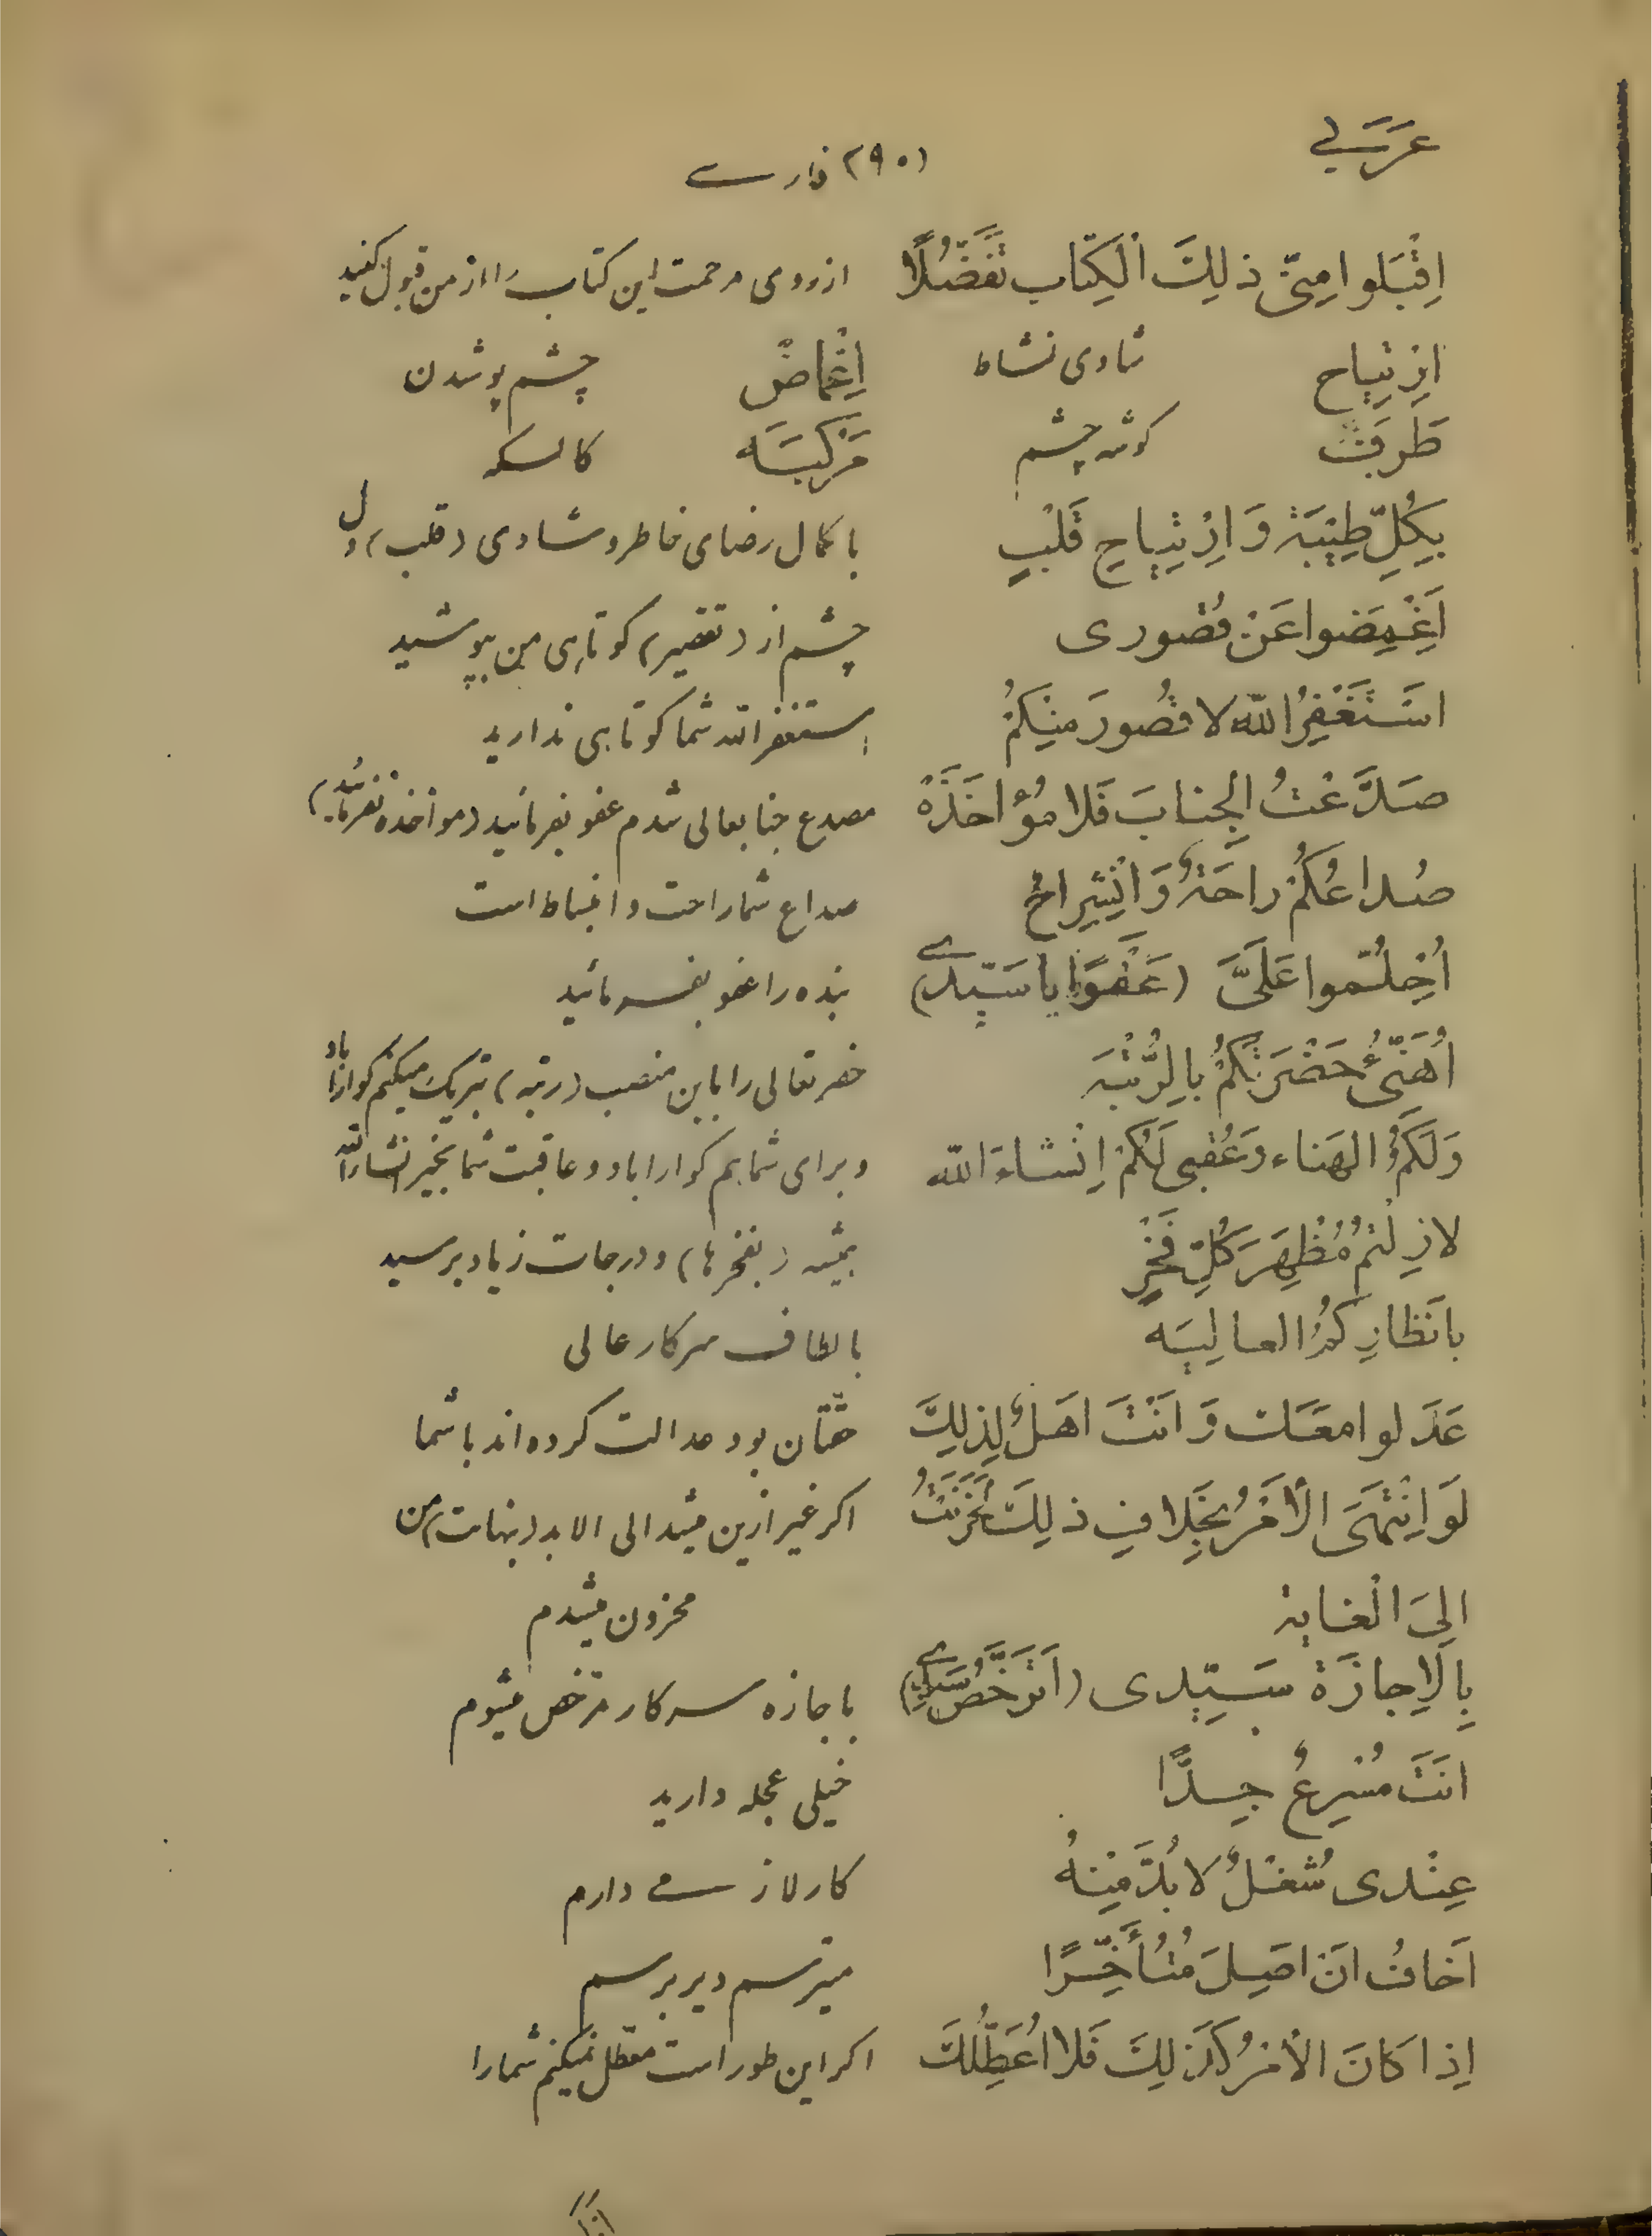 عَرَبی
(۲۹۰) فارسی
اِقْبَلوا مِنّی ذٰلِكَ الْكِتاب تَفَضُّلًا از روی مرحمت این کتاب را از من قبول کنید
اِرْتِیاح شادی نشاط اِغْماضْ چشم پوشیدن
طَرَف گوشه چشم مَرْکَبَه کالسکه
بِکُلِّ طِیْبَةٍ وَ اِرْتِیاحِ قَلْبٍ با کمال رضای خاطر و شادی (قلب) دل
اَغْمِضوا عَنْ قُصُوری چشم از (تقصیر) کوتاهی من بپوشید
اسْتَغْفِرُ اللّٰه لا قُصُورَ مِنْکُمْ استغفر الله شما کوتاهی ندارید
صَدَّعْتُ الْجِنابَ فَلا مُؤاخَذَةً مصدع جنابعالی شدم عفو بفرمائید (مواخذه نفرمائید)
صُداعُکُمْ راحَةٌ وَ انْشِراحٌ صداع شما راحت و انبساط است
اُحْلُمُوا عَلَیَّ (عَفْوًا یا سَیِّدی) بنده را عفو بفرمائید
اُهَنِّیُٔ حَضْرَتَکُمْ بِالرُّتْبَه حضرتعالی را باین منصب (رتبه) تبریک میکنم گوارا باد
وَلَکُمُ الهَناء وَعُقْبی لَکُمْ اِنْشاءَ اللّٰه و برای شما هم گوارا باد و عاقبت شما بخیر انشاء الله
لازِلْتُمْ مُظْهِرَ کُلِّ فَخْرٍ همیشه (بفخرها) و درجات زیاد برسید
بِانْظارِکُمُ العالِیَه بالطاف سرکار عالی
عَدَلوا مَعَكَ وَ انْتَ اهْلٌ لِذٰلِكَ حقتان بود عدالت کرده اند با شما
لَوْ اِنْتَهَی الْاَمْرُ بِخِلافِ ذٰلِكَ لَحَزِنْتُ اکر غیر ازین میشد الی الابد (بنهایت) من
اِلَی الْغایة محزون میشدم
بِالْاِجازَة سَیِّدی (اَتَرَخَّصُ سَیِّدی) باجازه سرکار مرخص میشوم
انْتَ مُسْرِعٌ جِدًّا خیلی عجله دارید
عِنْدی شُغْلٌ لابُدَّ مِنْهُ کار لازمی دارم
اَخافُ انْ اصِلَ مُتَأَخِّرًا میترسم دیر برسم
اِذا کانَ الْاَمْرُ کَذٰلِكَ فَلا اُعَطِّلُكَ اکر این طور است معطل نمیکنم شما را